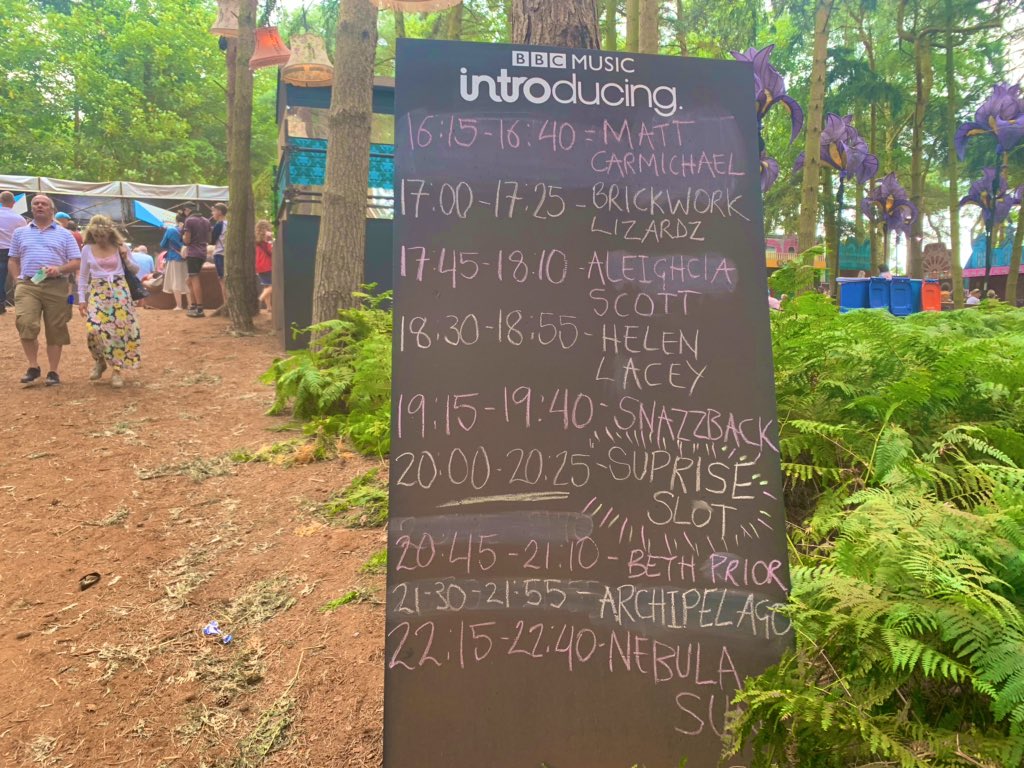 BBC MUSIC
introducing.
16:15-16:40 = MATT
CARMICHAEL
17:00-17:25 - BRICKWORK
LIZARDZ
17:45-18:10 - ALEIGHCIA
SCOTT
18:30-18:55 - HELEN
LACEY
19:15-19:40 - SNAZZBACK
20:00-20:25 - SUPRISE
SLOT
20:45-21:10 - BETH PRIOR
21:30-21:55 - ARCHIPELAGO
22:15-22:40 - NEBULA